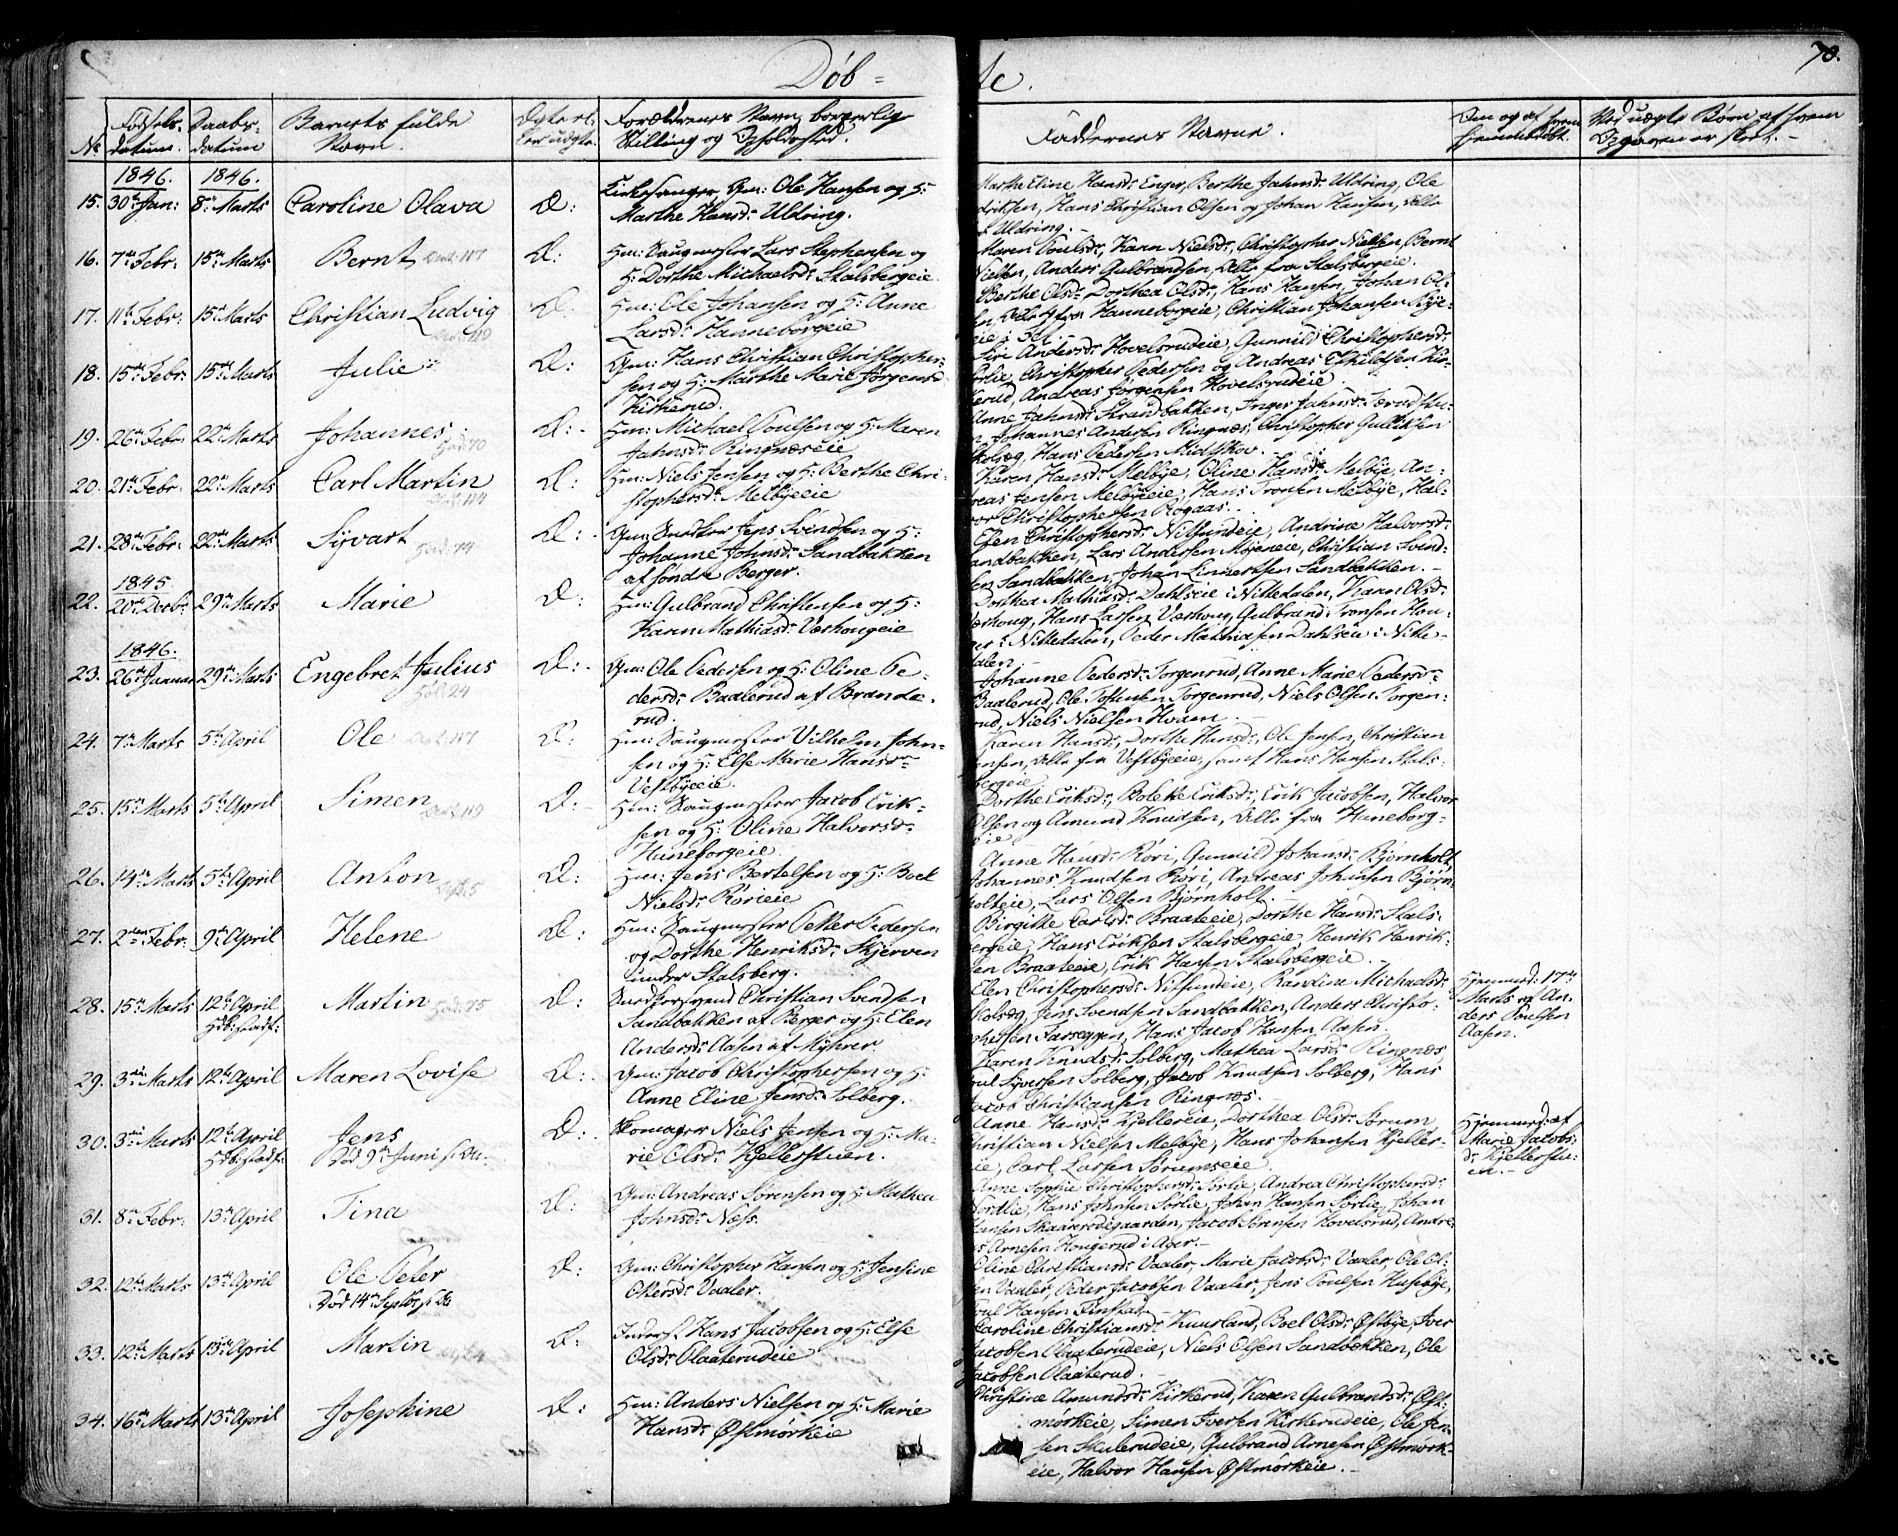 Døb=
te.
70.
No
Fødsels-
datum.
Daabs-
datum
Barnets fulde
Navn.
Forældrenes Navn, borgerlig
Stilling og Opholdssted.
Faddernes Navne.
1846. 1846.
15. 30te Jan: 8de Marts Caroline Olava D: Kirkesanger Gm: Ole Hansen og H:
Marthe Hansd: Uldring.
Marthe Eline Hansd: Enger, Berthe Jahnsd: Uldring, Ole
driksen, Hans Christian Olsen og Johan Hansen, alle
f. Uldring.
16. 7de Febr: 15de Marts Bernt D: Hm: Saugmester Lars Stephensen og
H: Dorthe Michaelsd: Stalsbergeie.
Maren Poulsd:, Karen Nielsd:, Christopher Nielsen, Bernt
Nielsen, Anders Gulbrandsen, alle fra Stalsbergeie.
17. 11te Febr: 15de Marts Christian Ludvig D: Hm: Ole Johansen og H: Anne
Larsd: Hanneborgeie
Berthe Olsd: Dorthea Olsd:, Hans Hansen, Johan Ol-
sen, alle fra Hanneborgeie, Christian Johansen Rye-
eie
18. 15de Febr: 15de Marts Julie D: Gm: Hans Christian Christopher-
sen og H: Marthe Marie Jørgensd:
Kirkerud.
Siri Andersd: Hovelsrudeie, Gunnild Christophersd:
Sørlie, Christopher Pedersen og Andreas Eskildsen Kir-
kerud, Andreas Jørgensen Hovelsrudeie.
19. 26de Febr: 22de Marts Johannes D: Hm: Michael Poulsen og H: Maren
Jahnsd: Ringnæseie
Anne Jahnsd: Strandbakken, Inger Jahnsd:
Johannes Andersen Ringnæs, Christopher Gulliksen
Holseg, Hans Pedersen Midskov.
20. 21de Febr: 22de Marts Carl Martin D: Hm: Niels Jensen og H: Berthe Chri-
stophersd: Melbyeeie
Karen Hansd: Melbye, Oline Hansd: Melbye, An-
dreas Jensen Melbyeeie, Hans Tronsen Melbye, Hal-
vor Christophersen Rogaas.
21. 28de Febr: 22de Marts Syvert D: Gm: Jens Svendsen og H:
Johanne Johnsd: Sandbakken
af søndre Berger.
Elen Christophersd: Nitsundeie, Andrine Halvorsd:
Sandbakken, Lars Andersen Møieneie, Christian Svend-
sen Sandbakken, Johan Lennertsen Sandbakken.
1845
22. 20de Decbr: 29de Marts Marie D: Hm: Gulbrand Christensen og H:
Karen Mathiasd: Værhougeie
Dorthea Mathiasd: Dahlseie i Nittedalen, Karen Olsd:
Værhoug, Hans Larsen Værhoug, Gulbrand Tronsen Hau-
ger i Nittedalen, Peder Mathiasen Dahlseie i Nitte-
dalen.
1846.
23. 26de Januar 29de Marts Engebret Julius D: Gm: Ole Pedersen og H: Oline Pe-
dersd: Baalerud af Brande-
rud.
Johanne Pedersd: Torgenrud, Anne Marie Pedersd:
Baalerud, Ole Torgenrud, Niels Olsen Torgen-
rud, Niels Nielsen Hvam.
24. 7de Marts 5te April Ole D: Hm: Saugmester Vilhelm John-
sen og H: Else Marie Hansd:
Vestbyeeie.
Karen Hansd:, Dorthe Hansd:, Ole Jensen, Christian
Jensen, alle fra Vestbyeeie, samt Hans Hansen Stals-
bergeie.
25. 15de Marts 5te April Simen D: Hm: Saugmester Jacob Erik-
sen og H: Oline Halvorsd:
Huneborgeie.
Dorthe Eriksd:, Bolette Eriksd:, Erik Jacobsen, Halvor
Olsen og Amund Knudsen, alle fra Huneborg-
eie
26. 14de Marts 5te April Anton D: Hm: Jens Bertelsen og H: Boel
Nielsd: Rørieie
Anne Hansd: Røri, Gunnild Johansd: Bjørnholt,
Johannes Knudsen Røri, Andreas Johansen Bjørn-
holteie, Lars Olsen Bjørnholt.
27. 2den Febr: 9de April Helene D: Hm: Saugmester Petter Pedersen
og Dorthe Henriksd: Skjerven
under Stalsberg.
Birgitte Carlsd: Braateeie, Dorthe Hansd: Stals-
bergeie, Hans Eriksen Stalsbergeie, Henrik Henrik-
sen Braateeie, Erik Hansen Stalsbergeie.
28. 15de Marts 12te April Hdb: stadf: Martin D: Christian Svendsen
Sandbakken af Berger og H: Elen
Andersd: Aasen af Myhrer.
Elen Christophersd: Nitsundeie, Randine Michaelsd:
Holseg, Jens Svendsen Sandbakken, Anders Christo-
phersen Farseggen, Hans Jacob Hansen Aasen.
Hjemmed: 17de
Marts af An-
ders Poulsen
Aasen.
29. 3die Marts 12te April Maren Lovise D: Gm: Jacob Christophersen og H:
Anne Eline Jensd: Solberg.
Karen Knudsd: Solberg, Mathea Larsd: Ringnæs
Poul Syversen Solberg, Jacob Knudsen Solberg, Hans
Jacob Christiansen Ringnæs.
30. 3die Marts 12te April Hdb: stadf: Jens
Død 9de Juni s. A. D: Skomager Niels Jensen og H: Ma-
rie Olsd: Kjellerstuen.
Anne Hansd: Kjellereie, Dorthea Olsd: Sørum
Christian Nielsen Melbye, Hans Johansen Kjeller-
eie, Carl Larsen Sørumseie.
Hjemmed: af
Marie Jacobs-
d: Kjellerstu-
en.
31. 8de Febr: 13de April Tina D: Gm: Andreas Sørensen og H: Mathea
Johnsd: Næss.
Anne Sophie Christophersd: Sørlie, Andrea Christophersd:
Nordlie, Hans Johnsen Sørlie, Johan Hansen Sørlie, Johan
Hansen Skaanrødegaarden, Jacob Sørensen Hovelsrud, Andre-
as Arnesen Hougerud i Ager.
32. 12te Marts 13de April Ole Peter
Død 14de Septbr s. A. D: Gm: Christopher Hansen og H: Jensine
Ottersd: Vaaler.
Oline Christiansd: Vaaler, Marie Jacobsd: Vaaler, Ole Ol-
sen Vaaler, Peder Jacobsen Vaaler, Jens Poulsen Huseby,
Poul Hansen Finstad
33. 12te Marts 13de April Martin D: Inderst Hans Jacobsen og H: Else
Olsd: Olaaterudeie
Caroline Christiansd: Kuurland, Boel Olsd: Østbye, Iver
Jacobsen Olaaterudeie, Niels Olsen Sandbekken, Ole
Jacobsen Olaaterud.
34. 16de Marts 13de April Josephine D: Hm: Anders Nielsen og H: Marie
Hansd: Østmørkeie
Christine Amundsd: Kirkerud, Karen Gulbrandsd: Øst-
mørkeie, Simen Iversen Kirkerudeie, Ole Jen-
sen Skulerudeie, Gulbrand Arnesen Østmørk-
eie, Halvor Hansen Østmørkeie.